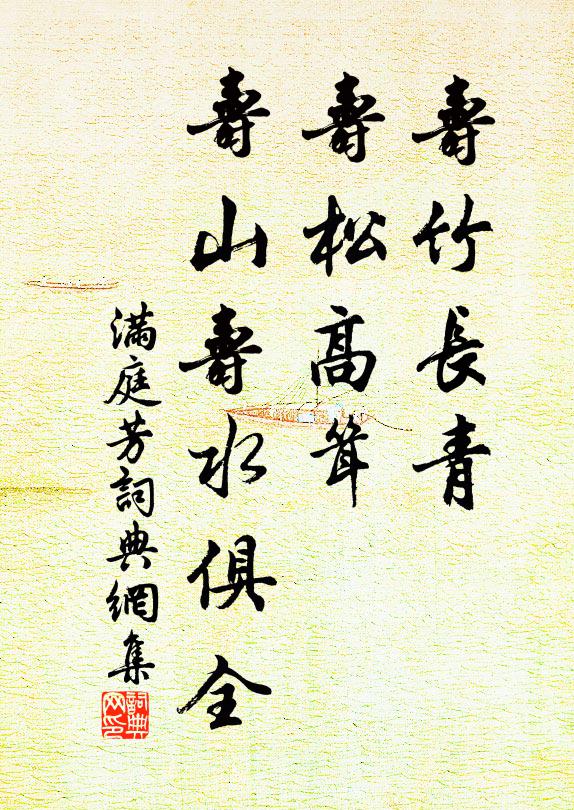 壽竹長青
壽松高聳
壽山壽水俱全
滿庭芳詞典網集
詞典網印